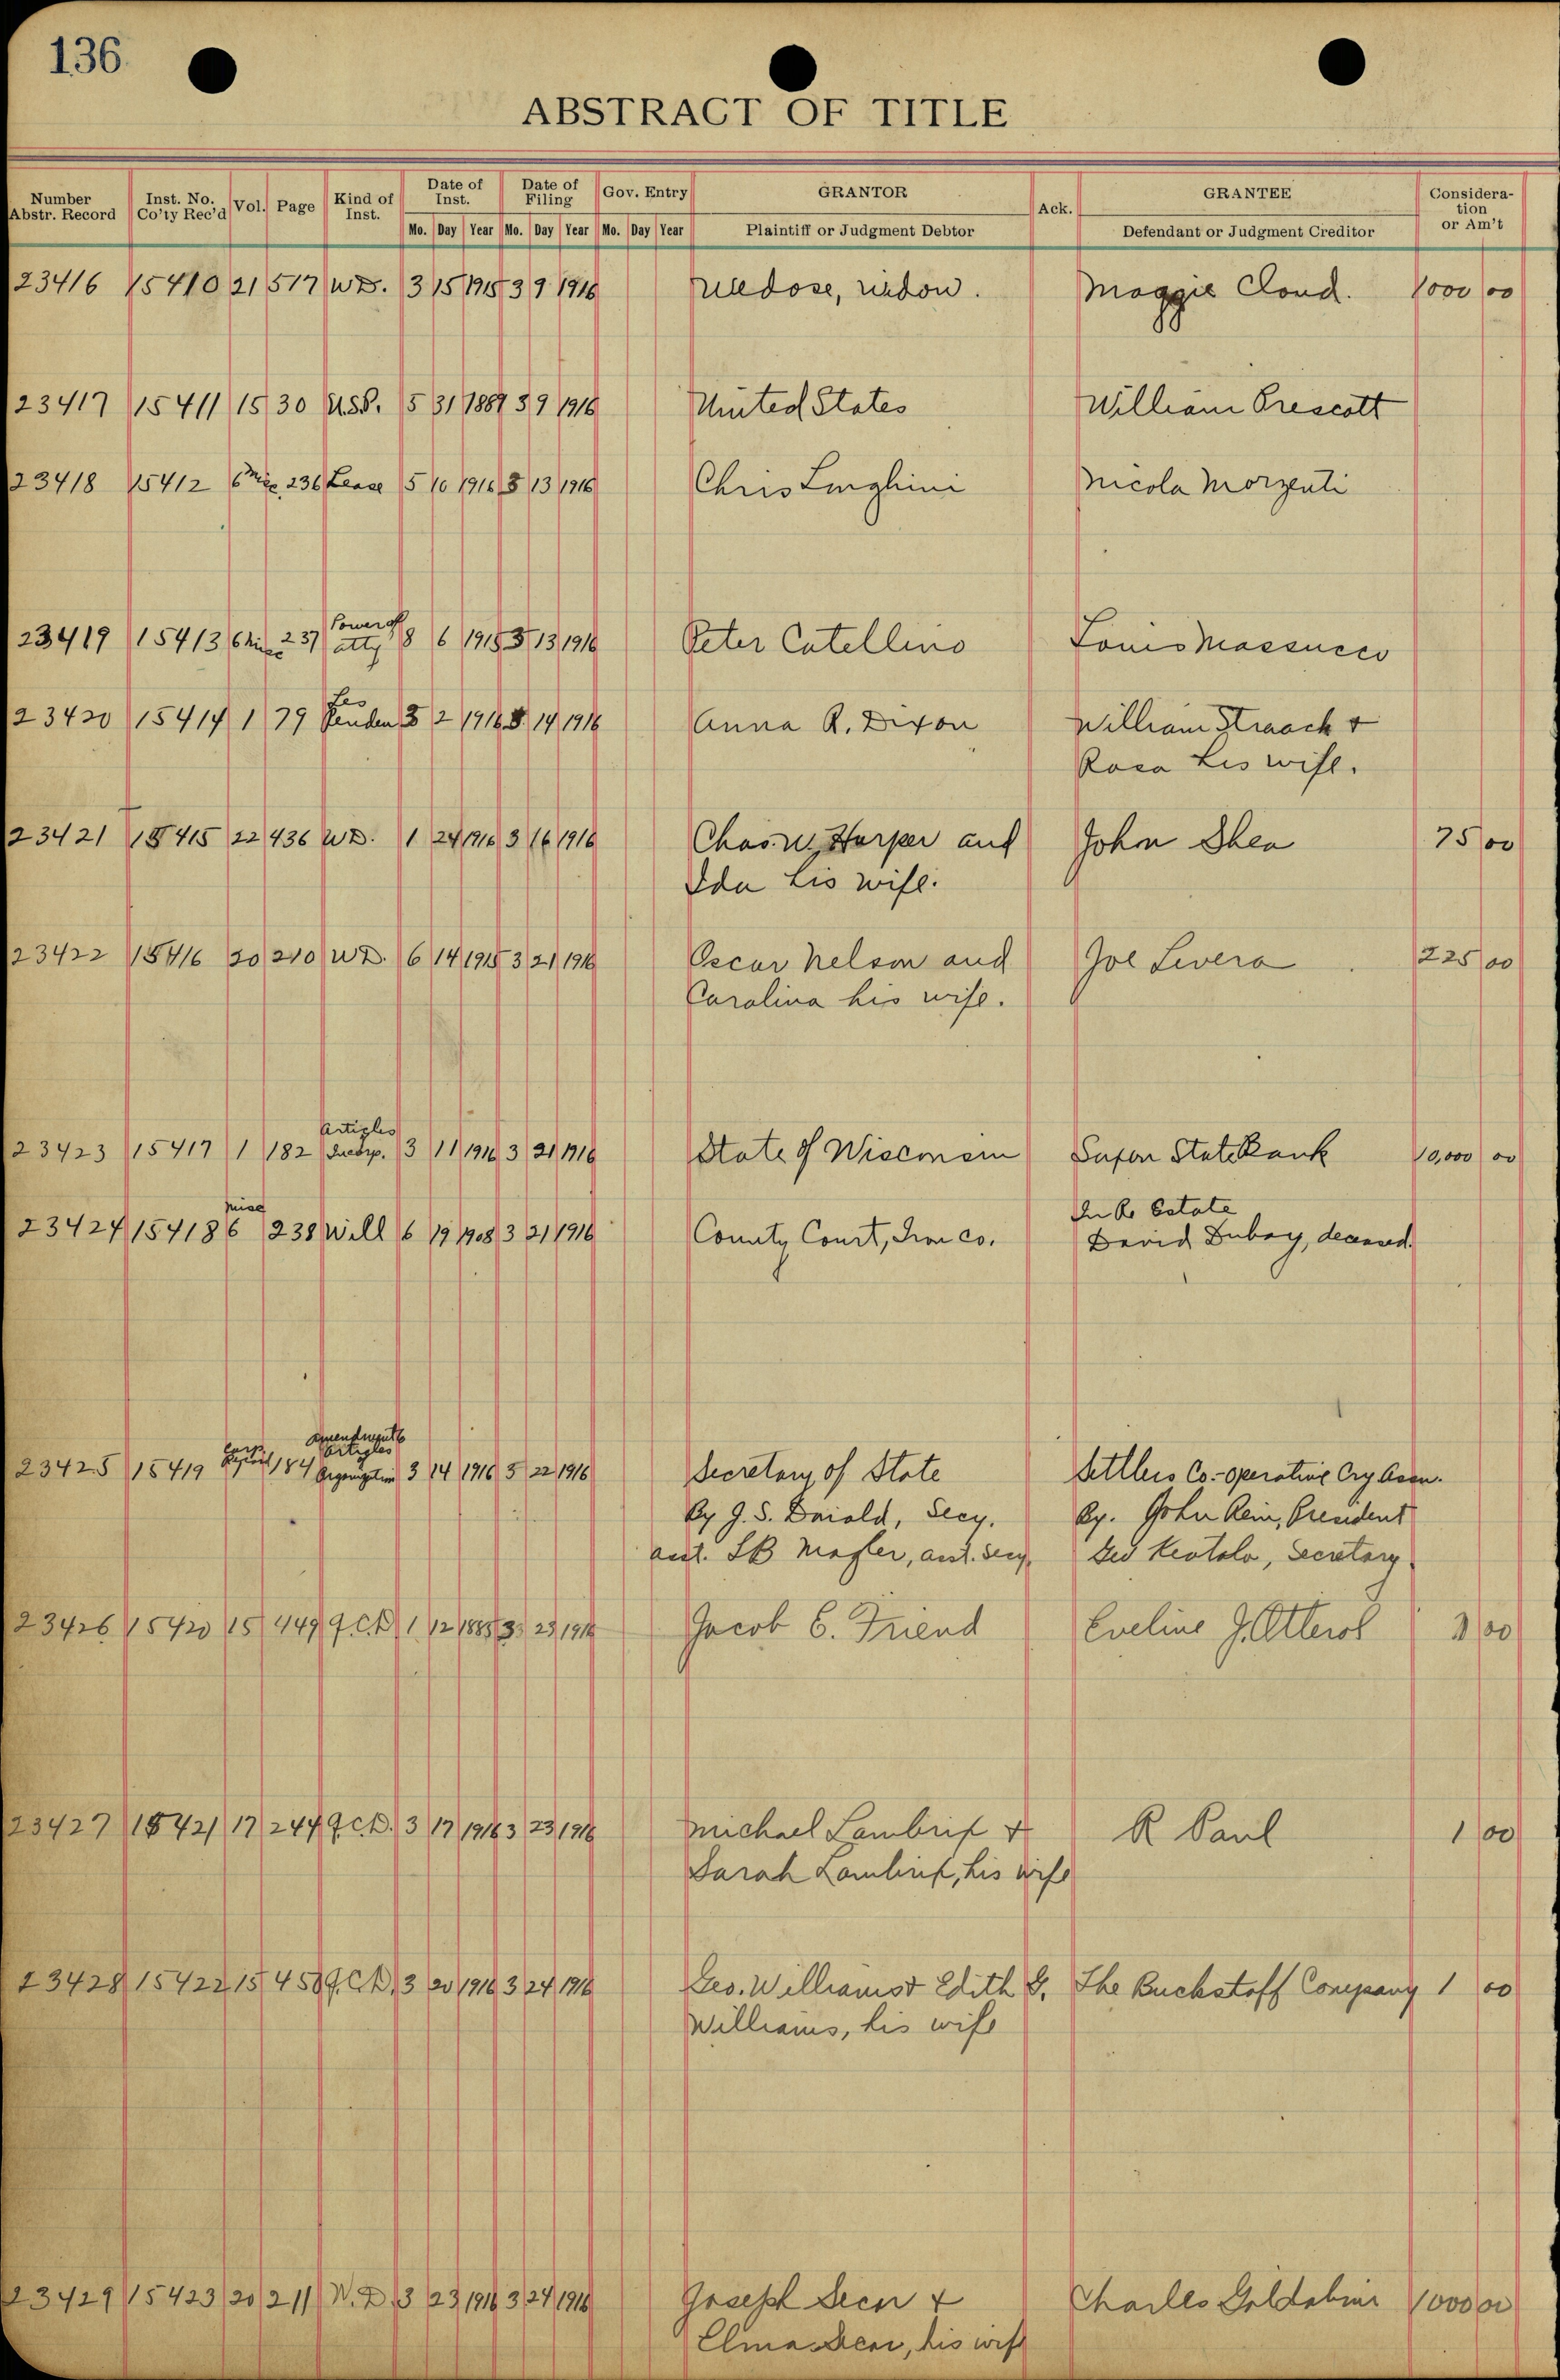 136
ABSTRACT OF TITLE
Number Abstr. Record Inst. No. Co'ty Rec'd Vol. Page Kind of Inst. Date of Inst. Date of Filing Gov. Entry GRANTOR Ack. GRANTEE Consideration or Am't
Mo. Day Year Mo. Day Year Mo. Day Year Plaintiff or Judgment Debtor Defendant or Judgment Creditor
23416 15410 21 517 W.D. 3 15 1915 3 9 1916 widow. Maggie Cloud. 1000 00
23417 15411 15 30 U.S.P. 5 31 1889 3 9 1916 United States William Prescott
23418 15412 6 Misc 236 Lease 5 10 1916 3 13 1916 Chris Linghini Nicola Morzenti
23419 15413 6 Misc 237 Power of atty 8 6 1915 3 13 1916 Peter Catellino Louis Massucco
23420 15414 1 79 Les Penden 3 2 1916 3 14 1916 Anna R. Dixon William Straach &
Rosa his wife.
23421 15415 22 436 W.D. 1 24 1916 3 16 1916 Chas. W. Harper and John Shea 75 00
Ida his wife.
23422 15416 20 210 W.D. 6 14 1915 3 21 1916 Oscar Nelson and Joe Livera 225 00
Carolina his wife.
23423 15417 1 182 Articles Incorp. 3 11 1916 3 21 1916 State of Wisconsin Saxon State Bank 10,000 00
23424 15418 6 Misc 238 Will 6 19 1908 3 21 1916 County Court, Iron Co. In Re Estate
David Dubay, deceased.
23425 15419 Corp Record 184 Amendment Articles Organization 3 14 1916 3 22 1916 Secretary of State Settlers Co-operative Assn.
By J. S. Secy. By. John Rein, President
asst. Asst. Secy. Secretary
23426 15420 15 449 Q.C.D. 1 12 1885 3 23 1916 Jacob E. Friend Eveline J. 1 00
23427 15421 17 244 Q.C.D. 3 17 1916 3 23 1916 Michael Lambrix & R Paul 1 00
Sarah Lambrix, his wife
23428 15422 15 450 Q.C.D. 3 20 1916 3 24 1916 Geo. Williams & Edith G. The Buckstaff Company 1 00
Williams, his wife
23429 15423 20 211 W.D. 3 23 1916 3 24 1916 Joseph & Charles 1000 00
his wife